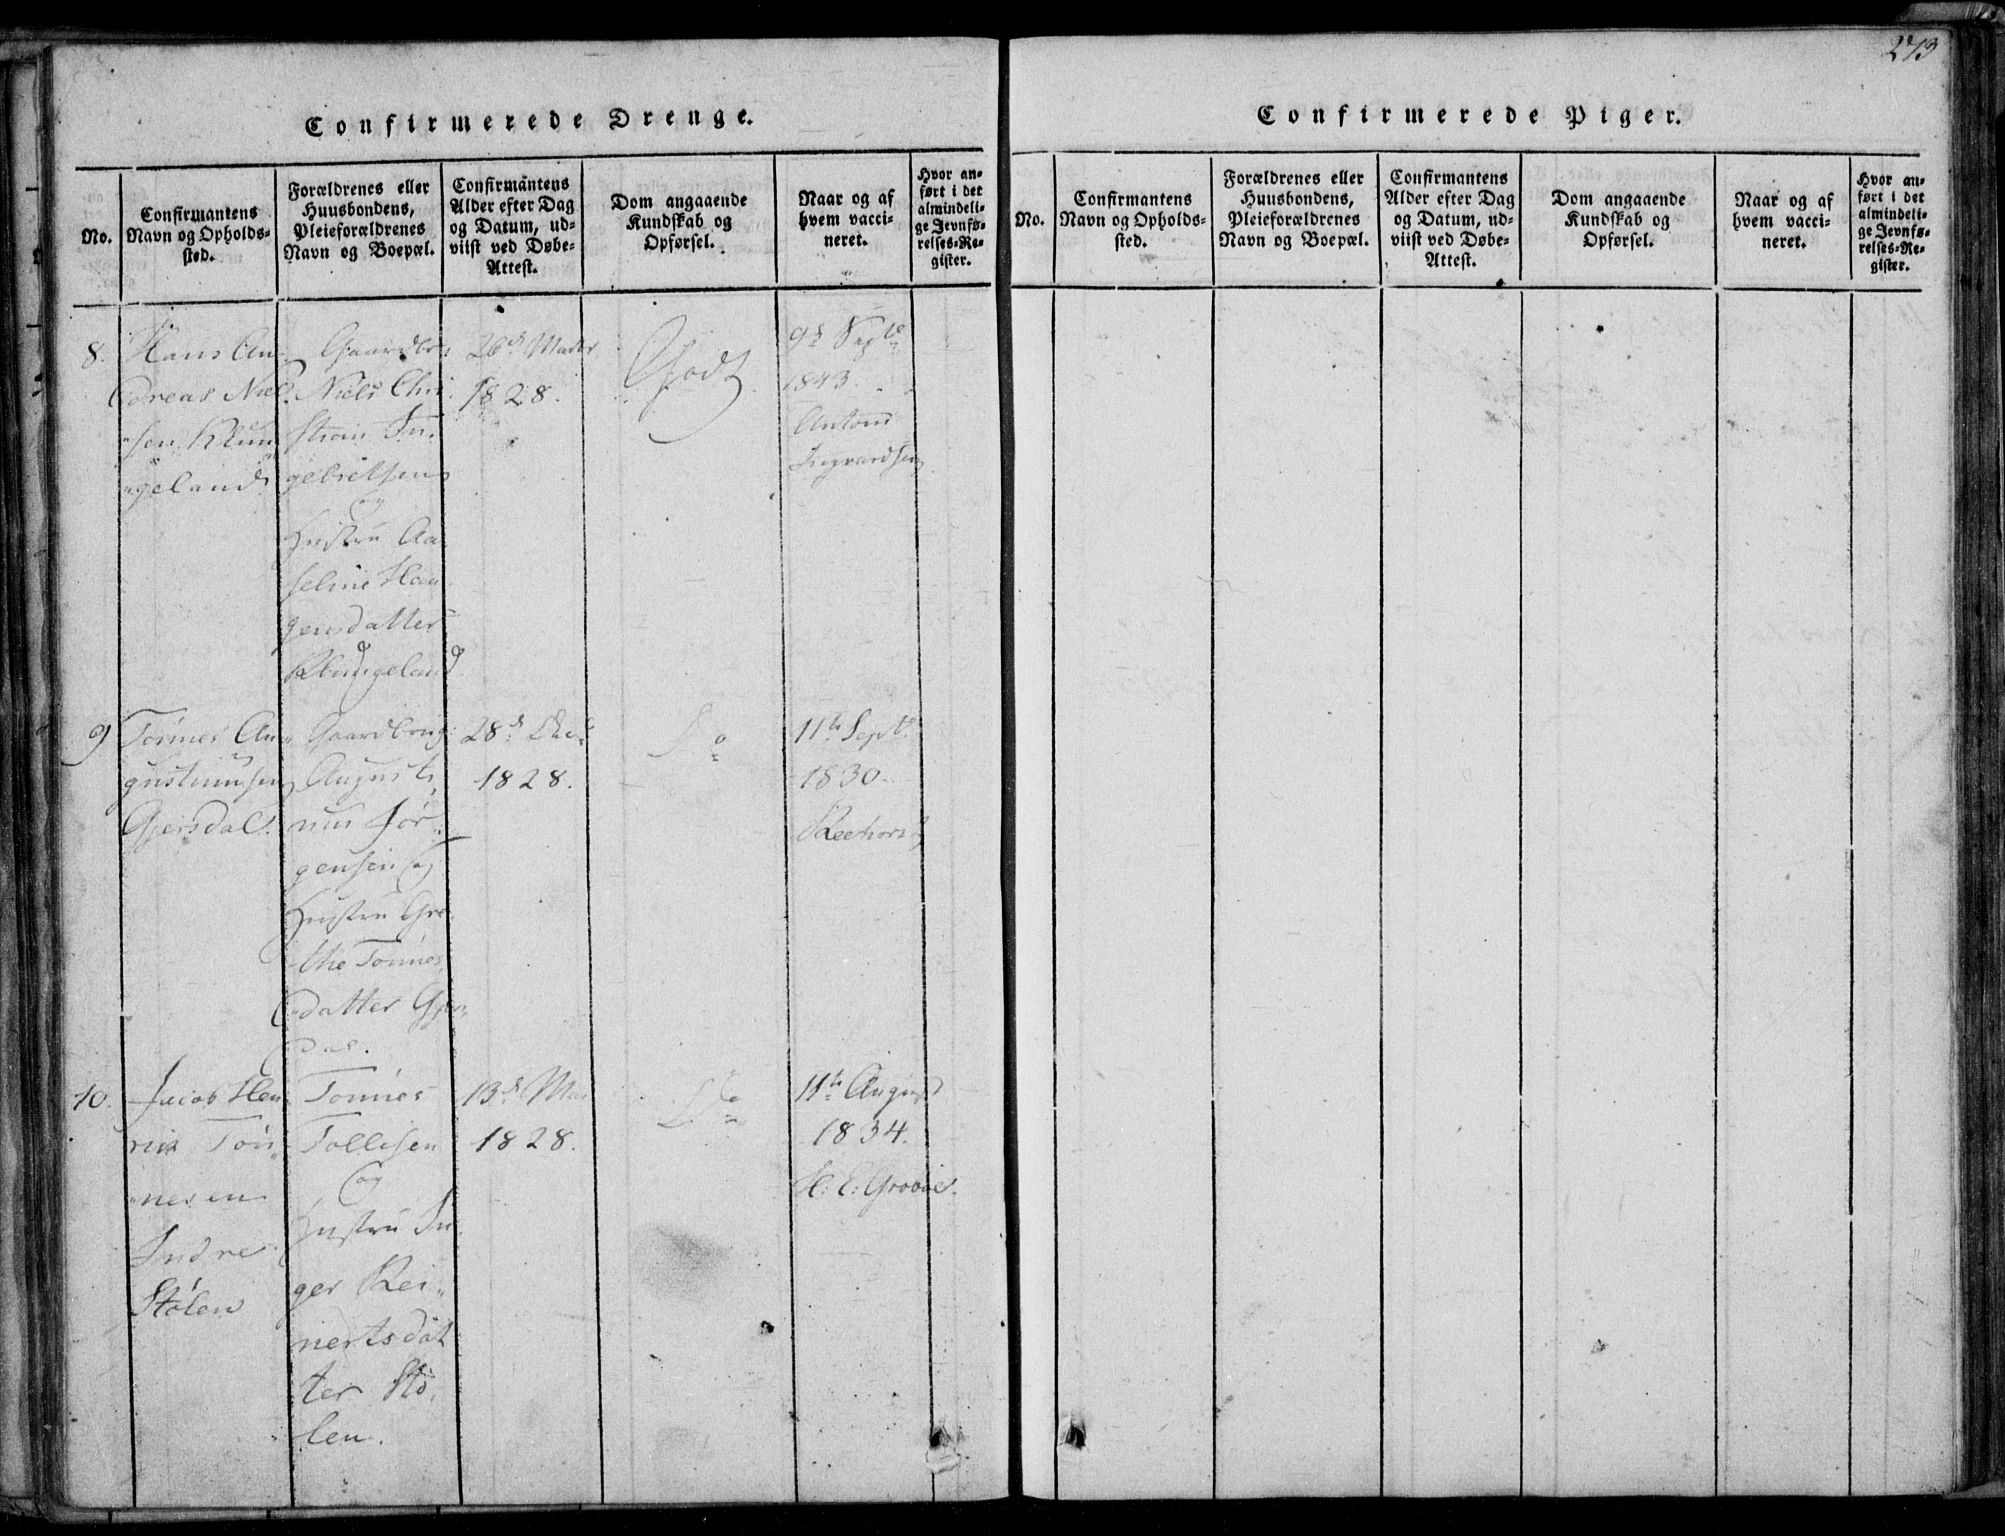 273
Confirmerede Drenge.
No.
Confirmantens
Navn og Opholds-
sted.
Forældrenes eller
Huusbondens,
Pleieforældrenes
Navn og Boepæl.
Confirmantens
Alder efter Dag
og Datum, ud-
viist ved Døbe-
Attest.
Dom angaaende
Kundskab og
Opførsel.
Naar og af
hvem vacci-
neret.
Hvor an-
ført i det
almindeli-
ge Jevnfø-
relses-Re-
gister.
8.
Hans An-
dreas Niel-
sen Klun
geland
Gaardbr
Niels Chri
stian In-
gebretsen
og
Hustru Aa
seline Haa
gensdatter
Klungeland
26d
1828.
Godt
9d Sept
1843.
Antoni
Ingvardsen
9
Tönnes Au
gustinusen
Gjersdal.
Gaardbrug
Augusti
nus Jör-
gensen og
Hustru Gre
the Tönnes
datter Gjers
dal.
28d
1828.
Do
11te Sept
1830.
10.
Jacob Hen
rik Tön
nesen
Indre
Stölen
Tönnes
Tollisen
og
Hustru In
ger Rei
nertsdat
ter Stö
len.
13d
1828.
Do
11te August
1834.
Confirmerede Piger.
No.
Confirmantens
Navn og Opholds-
sted.
Forældrenes eller
Huusbondens,
Pleieforældrenes
Navn og Boepæl.
Confirmantens
Alder efter Dag
og Datum, ud-
viist ved Døbe-
Attest.
Dom angaaende
Kundskab og
Opførsel.
Naar og af
hvem vacci-
neret.
Hvor an-
ført i det
almindeli-
ge Jevnfø-
relses-Re-
gister.